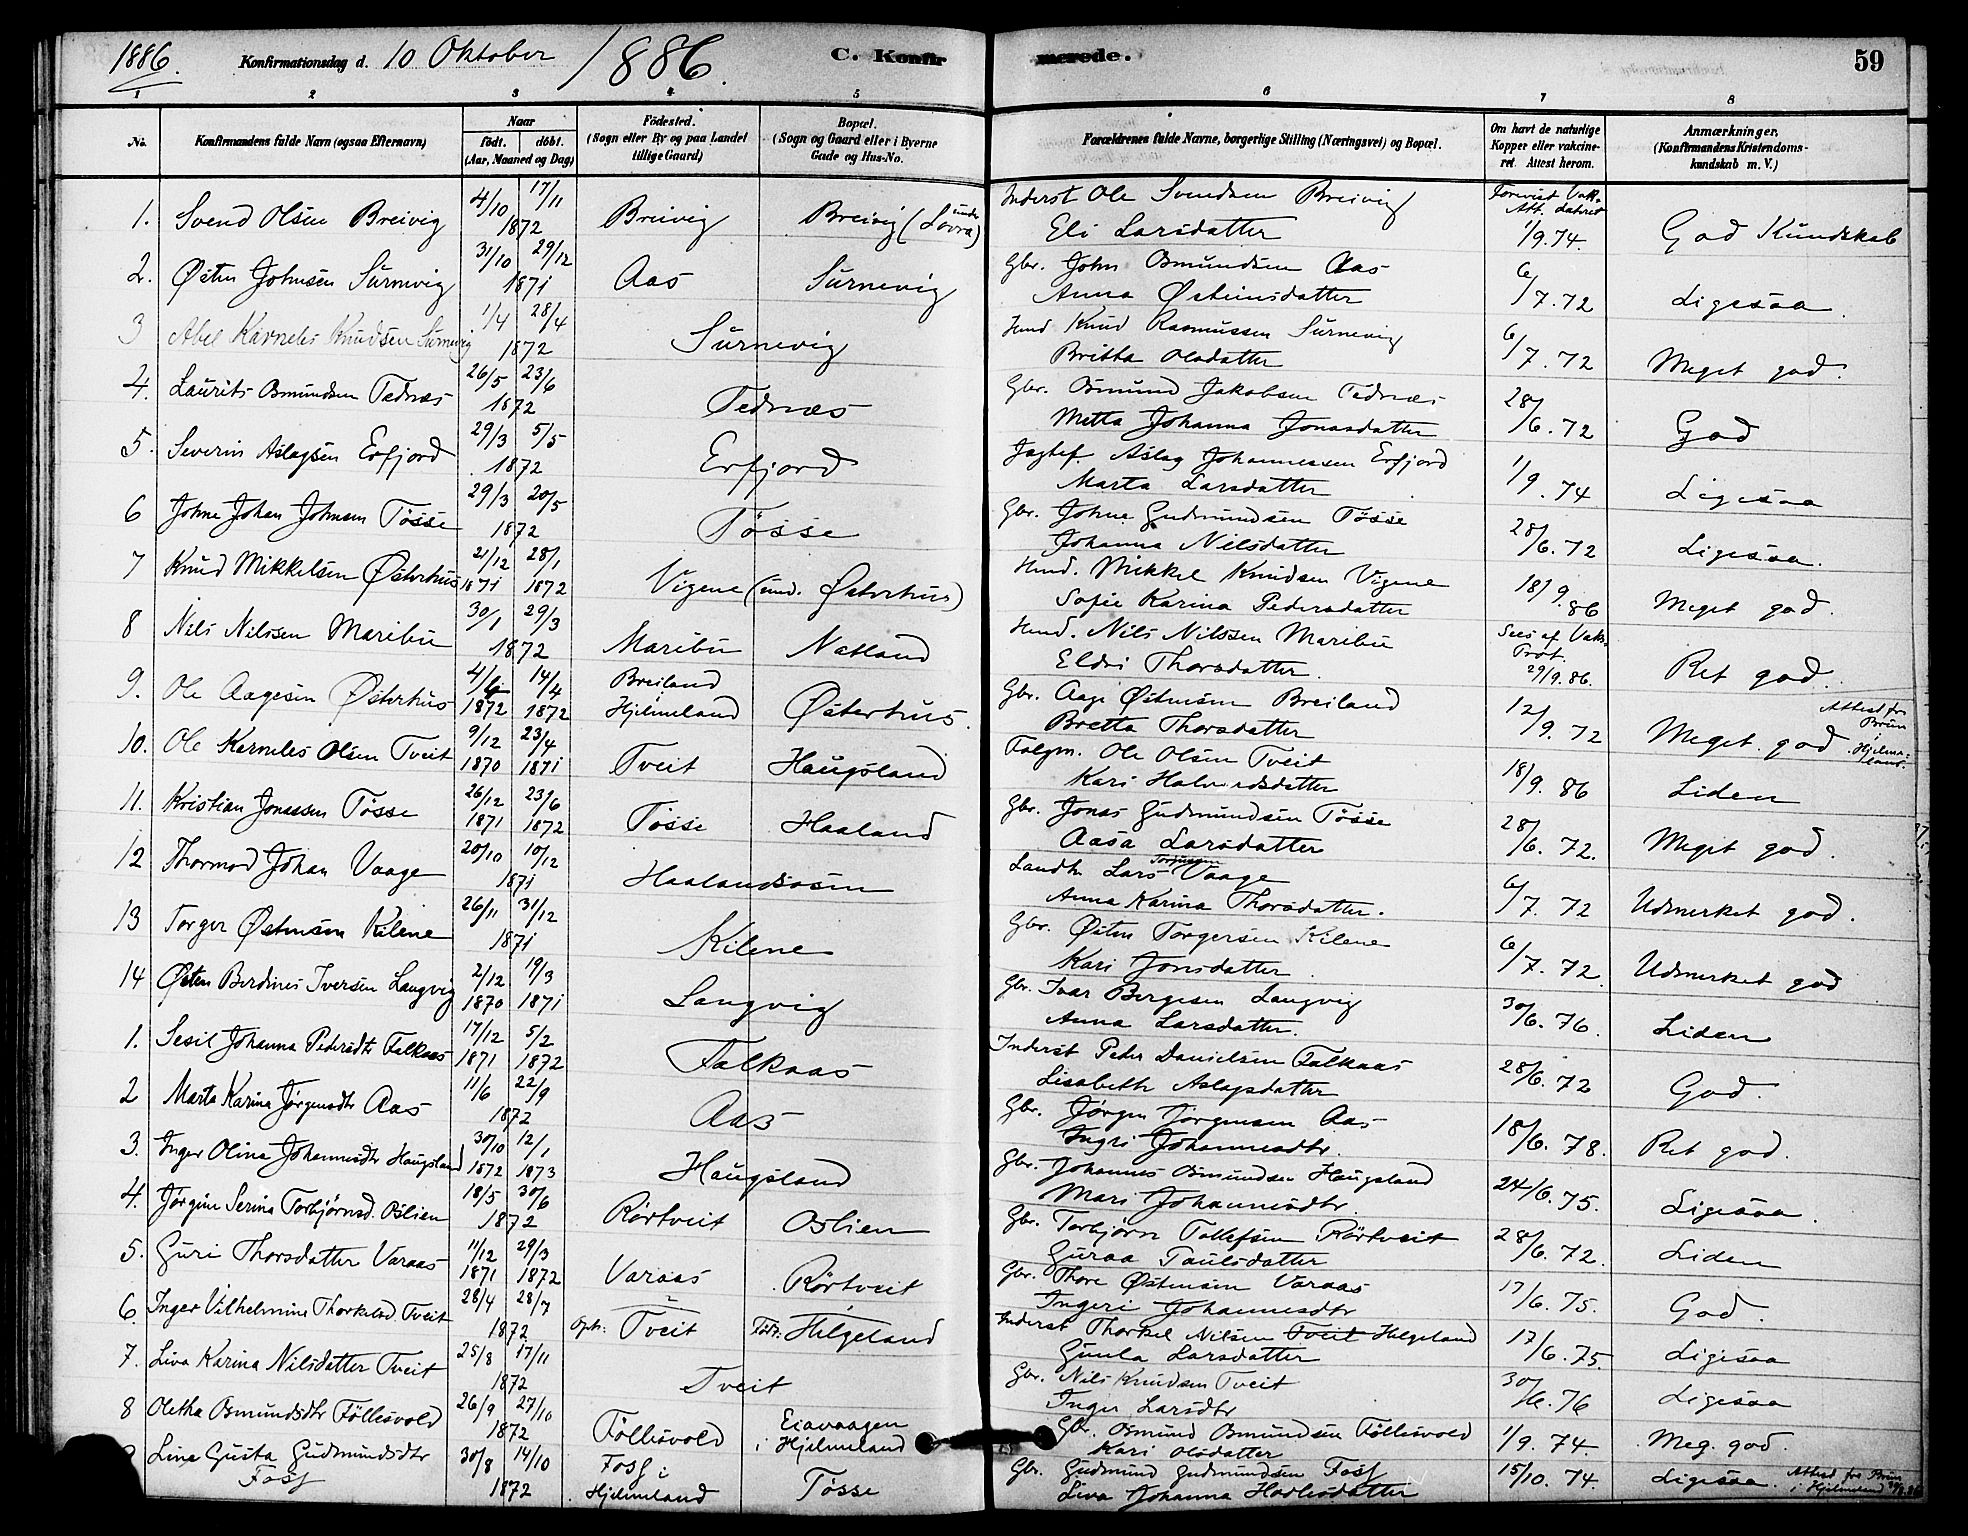 1886. Konfirmationsdag d. 10 Oktober 1886. C. Konfirmerede. 59
1 2 3 4 5 6 7 8
No. Konfirmandens fulde Navn (ogsaa Efternavn)
Naar
födt. döbt.
(Aar, Maaned og Dag)
Födested.
(Sogn eller By og paa Landet
tillige Gaard)
Bopæl.
(Sogn og Gaard eller i Byerne
Gade og Hus-No.
Forældrenes fulde Navne, borgerlige Stilling (Næringsvei) og Bopæl.
Om havt de naturlige
Kopper eller vakcine-
ret Attest herom.
Anmærkninger.
(Konfirmandens Kristendoms-
kundskab m. V.)
1. Svend Olsen Breivig 4/10 17/11 1872 Breivig Breivig (under Lovra) Inderst Ole Svendsen Breivig
Eli Larsdatter Forevist Vak. Att. dateret 1/9.74. God Kundskab
2. Østen Johnsen Surnevig 31/10 29/12 1871 Aas Surnevig Gbr. John Osmundsen Aas
Anna Østeinsdatter 6/7.72 Ligesaa.
3 Abel Karnelis Knudsen Surnevig 1/4 28/4 1872 Surnevig Hmd Knud Rasmussen Surnevig
Britha Olsdatter 6/7.72 Meget god.
4. Laurits Osmundsen Tednæs 26/5 23/6 1872 Tednæs Gbr. Osmund Jakobsen Tednæs
Metta Johanna Jonasdatter 28/6.72 God
5. Severin Aslagsen Erfjord 29/3 5/5 1872 Erfjord Jagtef. Aslag Johannessen Erfjord
Marta Larsdatter 1/9.74 Ligesaa
6 Johne Johan Johnsen Tøsse 29/3 20/5 1872 Tøsse Gbr. Johne Gudmundsen Tøsse
Johanna Nilsdatter 28/6.72 Ligesaa.
7 Knud Mikkelsen Østerhus 21/12 1871 28/1 1872 Vigene (und. Østerhus) Hmd. Mikkel Knudsen Vigene
Sofie Karina Pedersdatter 18/9.86 Meget god.
8 Nils Nilssen Maribu 30/1 29/3 1872 Maribu Natland Hmd. Nils Nilssen Maribu
Eldri Thorsdatter. Sees af Vak. Prot. 29/9.86. Ret god.
9. Ole Aagesen Østerhus 4/4 1872 14/4 1872 Breiland Hjelmeland Østerhus. Gbr. Aage Østensen Breiland
Bretta Thorsdatter 12/9.72 Meget god Attest fra Bruun i Hjelmeland.
10. Ole Karneles Olsen Tveit 9/12 1870 23/4 1871 Tveit Haugsland Følgm. Ole Olsen Tveit
Kari Halvordsdatter 18/9.86 Liden
11. Kristian Jonassen Tøsse 26/12 1871 23/6 1872 Tøsse Haaland Gbr. Jonas Gudmundsen Tøsse
Aasa Larsdatter 28/6.72. Meget god.
12 Thormod Johan Vaage 20/10 10/12 1871 Haalandsosen Landh. Lars Torjussen Vaage
Anna Karina Thorsdatter. 6/7.72 Udmerket god.
13 Torger Østensen Kilene 26/11 31/12 1871 Kilene Gbr. Østen Torgersen Kilene
Kari Jonsdatter. 6/7.72. Udmerket god
14 Østen Berdines Iversen Langvig 2/12 1870 19/3 1871 Langvig Gbr. Ivar Bergesen Langvig
Anna Larsdatter. 30/6.76. Liden
1. Sesil Johanna Pedersdtr Falkaas 17/12 1871 5/2 1872 Falkaas Inderst Peder Danielsen Falkaas
Lisabeth Aslagsdatter 28/6.72 God.
2 Marta Karina Jørgensdtr Aas 11/6 22/9 1872 Aas Gbr. Jørgen Jørgensen Aas
Ingri Johannesdtr. 18/6.78. Ret god.
3. Inger Olina Johannesdtr Haugsland 30/10 1872 12/1 1873 Haugsland Gbr. Johannes Osmundsen Haugsland
Mari Johannesdtr. 24/6.75. Ligesaa.
4. Jørgine Serina Torbjørnsd. Oslien 18/5 30/6 1872 Rörtveit Oslien Gbr. Torbjørn Tollefsen Rörtveit
Guraa Paulsdatter 28/6.72. Liden
5. Guri Thorsdatter Varaas 11/12 1871 29/3 1872 Varaas Rörtveit Gbr. Thore Østensen Varaas
Ingeri Johannesdtr 17/6.75. God.
6. Inger Vilhelmine Thorkelsd Tveit 28/4 28/7 1872 Oph: Tveit Födt: Helgeland Inderst Thorkel Nilsen Tveit Helgeland
Gunla Larsdatter 17/6.75. Ligesaa
7. Liva Karina Nilsdatter Tveit 25/8 17/11 1872 Tveit Gbr. Nils Knudsen Tveit
Inger Larsdtr 30/6.76 Ligesaa
8 Oletha Osmundsdtr Föllesvold 26/9 27/10 1872 Föllesvold Eiavaagen i Hjelmeland Gbr. Osmund Osmundsen Föllesvold
Kari Olsdatter 1/9.74. Meg. god.
Line Gusta Gudmundsdtr Foss 30/8 14/10 1872 Foss i Hjelmeland Tøsse Gbr. Gudmund Gudmundsen Foss
Liva Johanna Hadlesdatter 15/10.74. Ligesaa. Attest fra Bruun i Hjelmeland